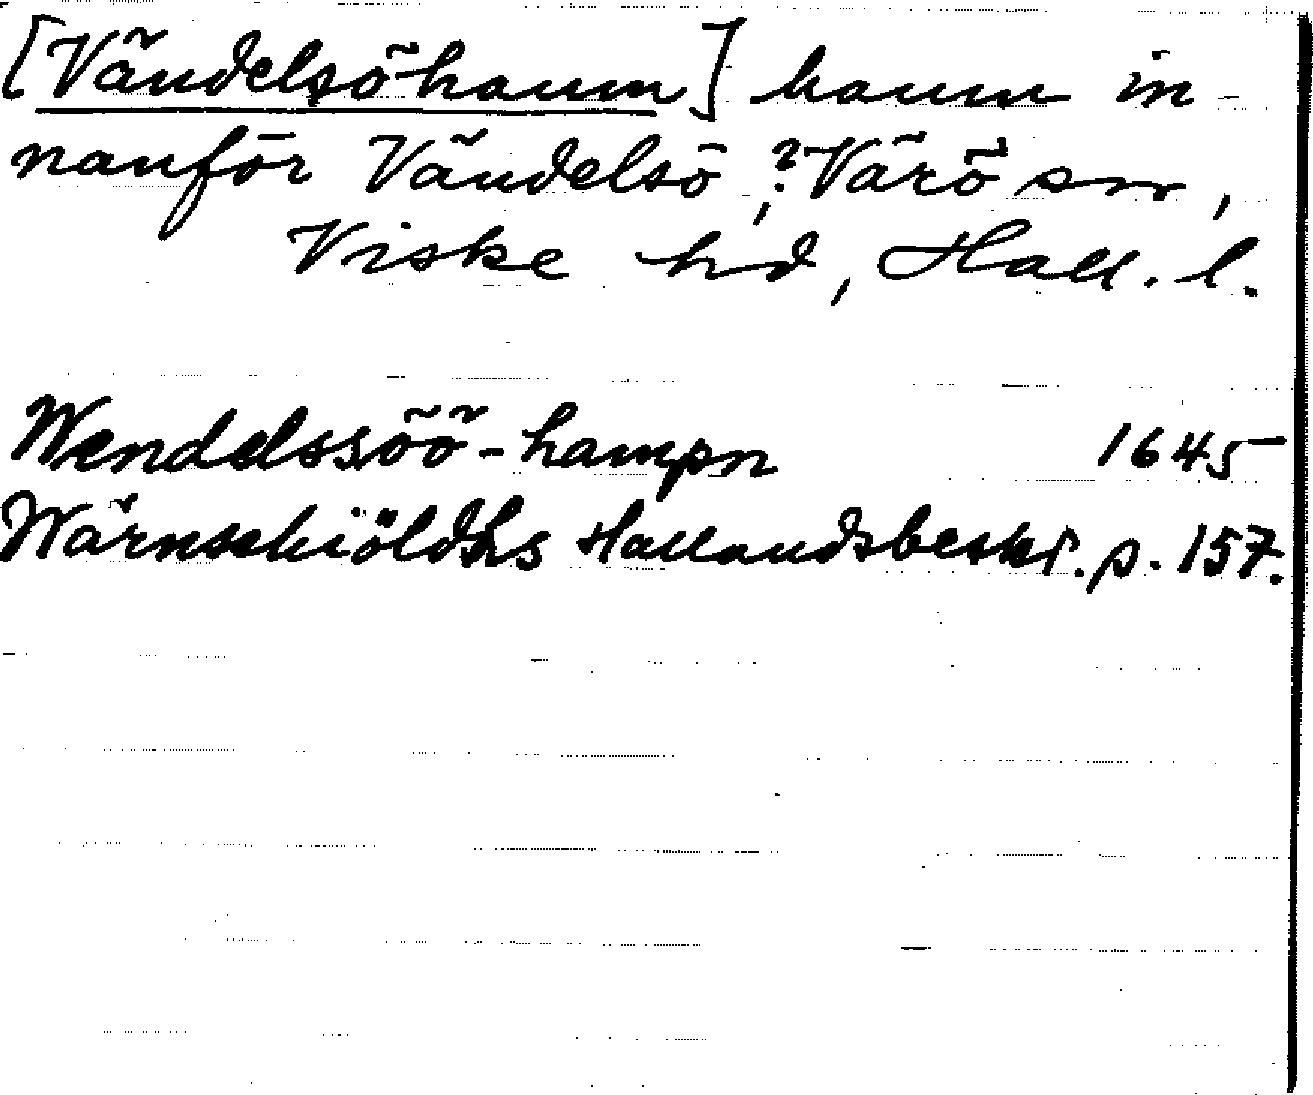 [Vändelsöhamn] hamn in-
nanför Vändelsö, ? Värö sn,
Viske hd, Hall. l.
Wendelssöö-hampn 1645
Wärnschiöldhs Hallandsbeskr. p. 157.